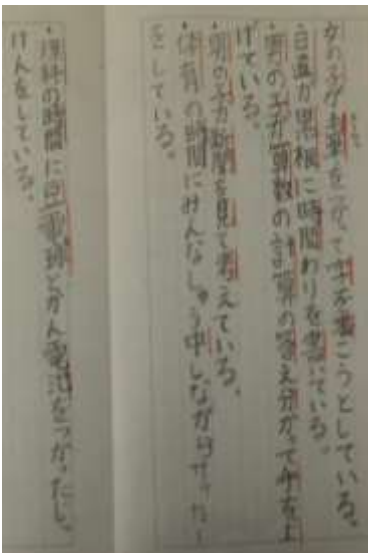 女の子が言葉を使って字を書こうとしている。
・日直が黒板に時間わりを書いている。
・男の子が算数の計算の答え分かって手を上
げている。
・男の子が新聞を見て考えている。
・体育の時間にみんなしゅう中しながらサッカー
をしている。
・理科の時間に豆電球とかん電池をつかったじっ
けんをしている。